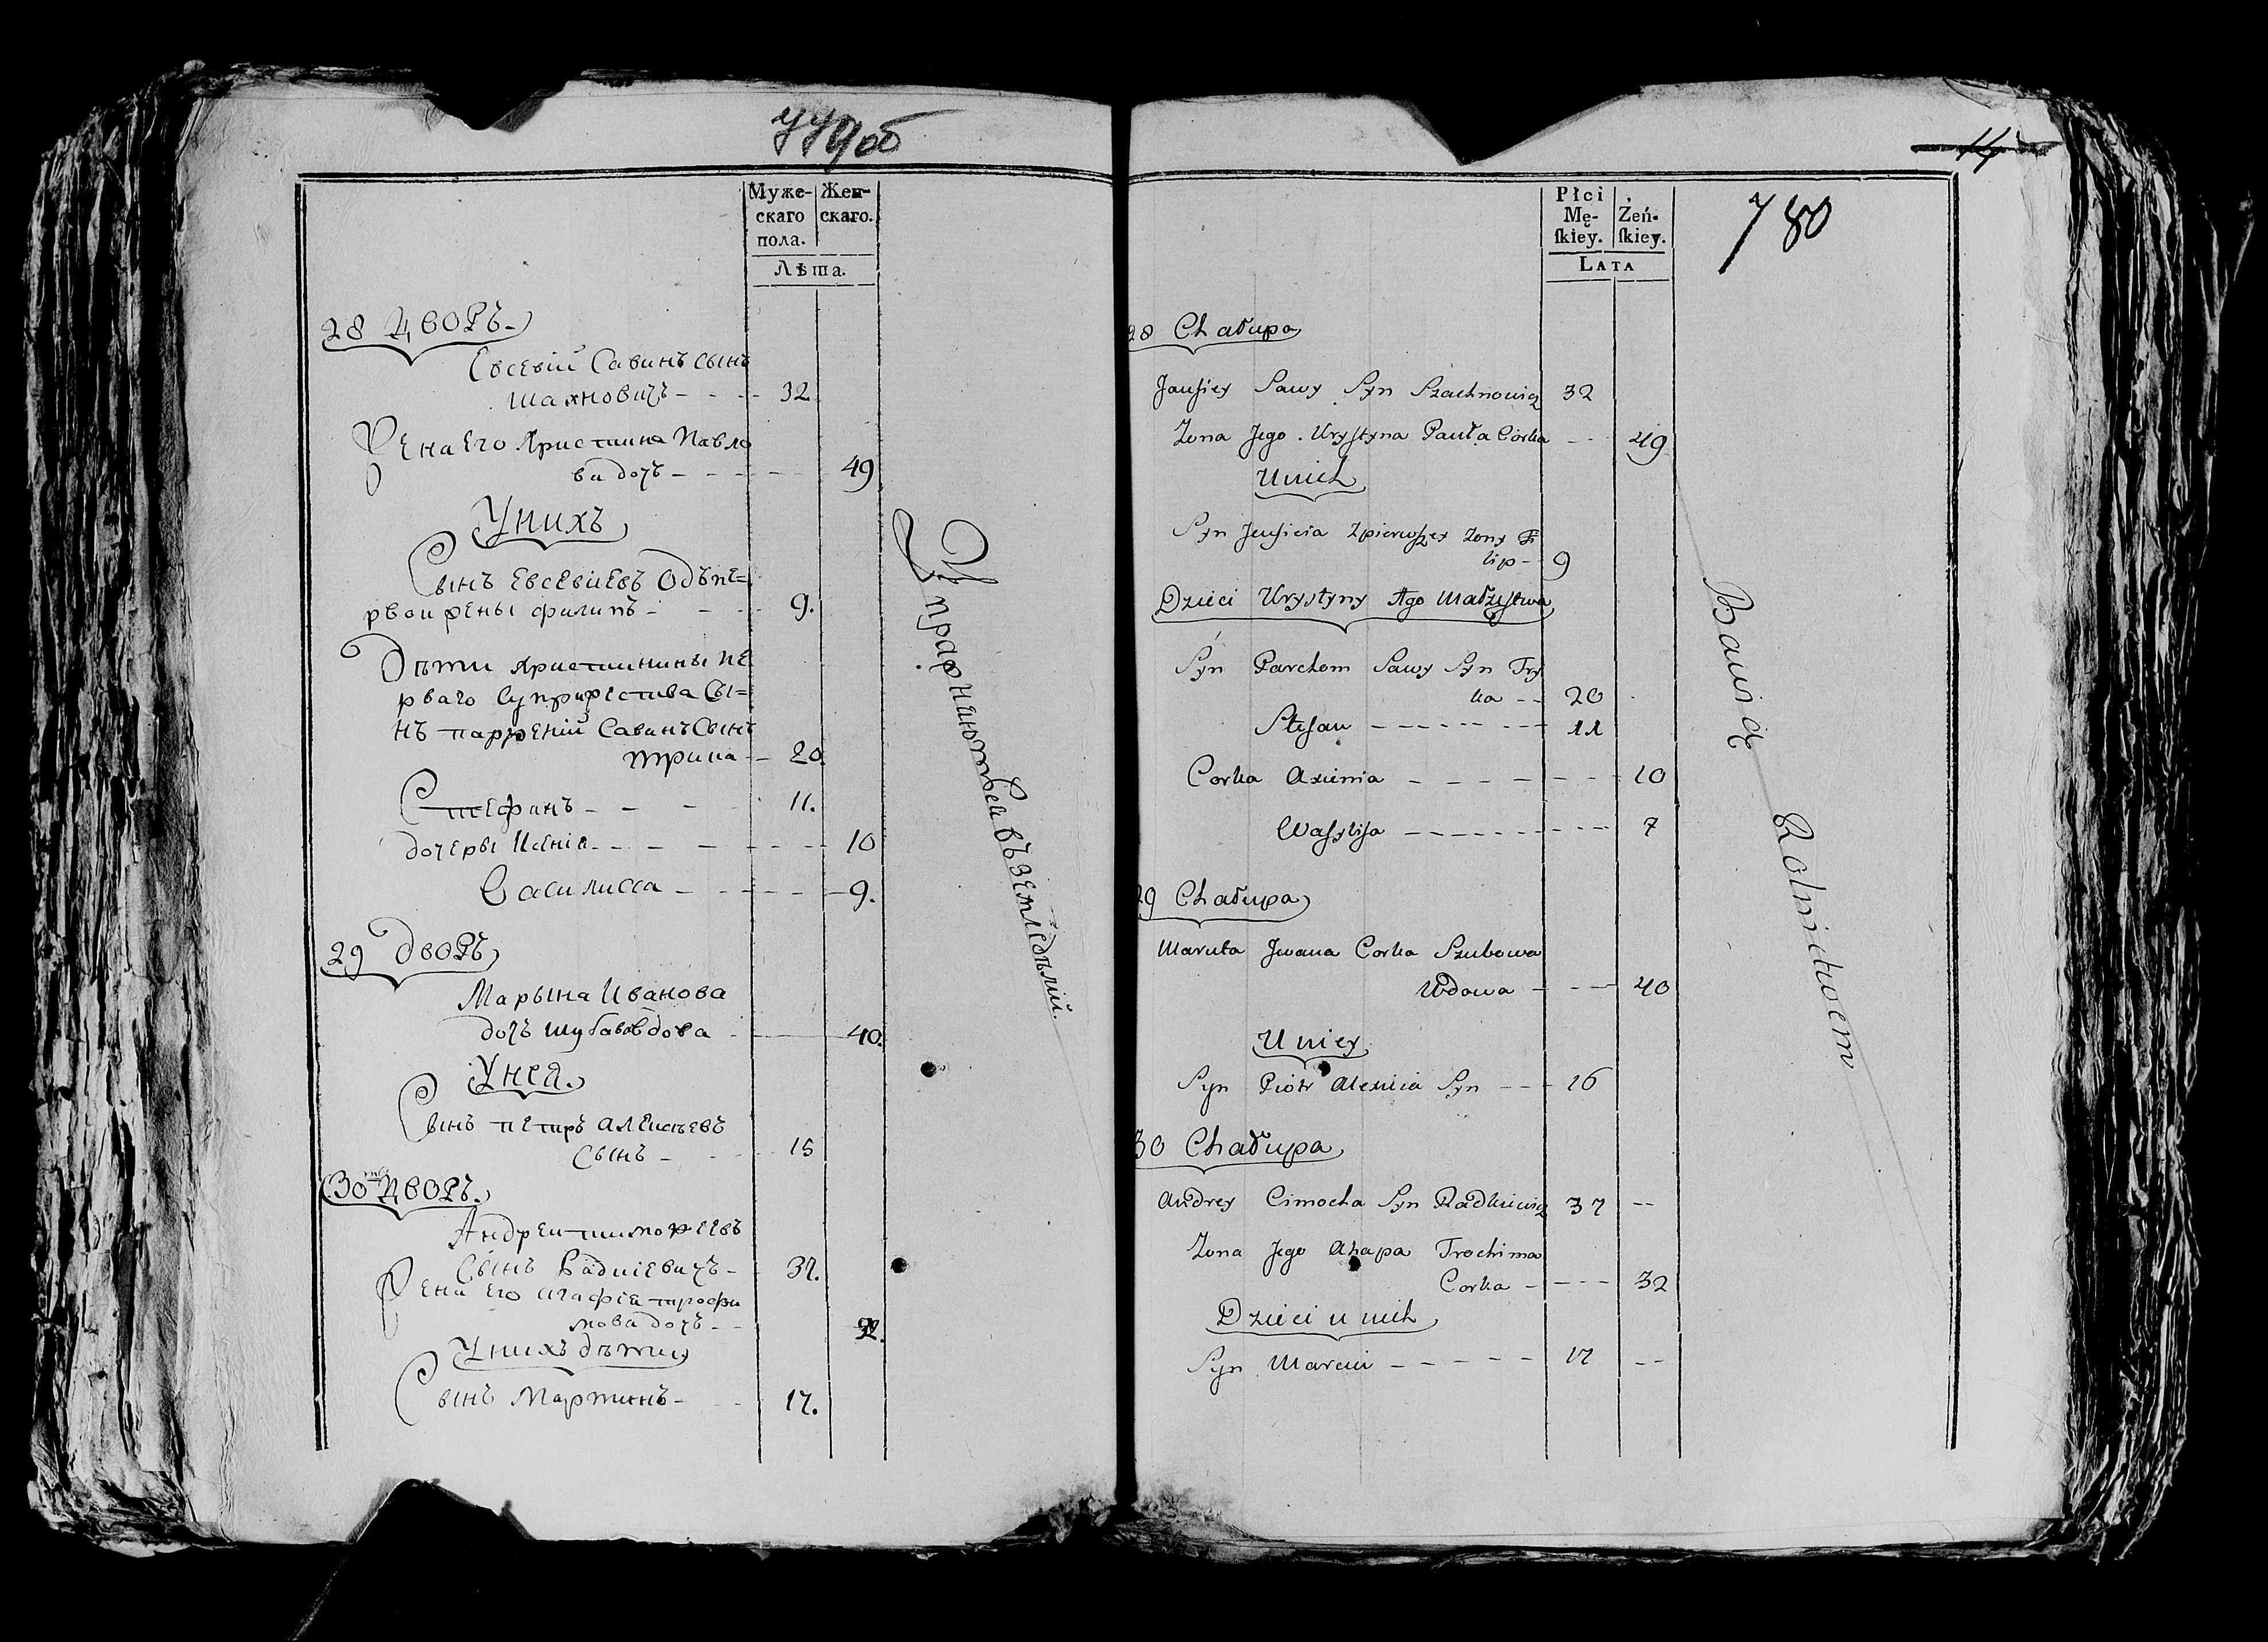 779об
Муже-
скаго
пола.
Жен-
скаго.
Лѣта.
28 Дворъ.
Евсевій Савинъ сынъ
Шахновичъ - - - 32
Жена Его Христина Павло
ва дочь - - - 49
У нихъ
Сынъ Евсевіевъ Одъ пе=
рвои жены филипъ - - - 9.
Дѣти Христинины пе
рваго Супружества Сы=
нъ парфеній Савинъ Сынъ
трика - 20
Стефанъ - - - 11.
дочеры Ксенія - - - 10
Василисса - - - 9.
29 Дворъ
Марына Иванова
дочь Шубава вдова - 40.
У нея.
Сынъ петръ алексѣевъ
Сынъ - - - 15
30тъ Дворъ.
Андреи тимофеевъ
Сынъ Радкевичъ - 37.
Жена Его агафія трофи
мова дочь - - 32.
У нихъ дѣти
Сынъ Мартинъ - - 17.
Упражняются въ земледѣлій.
14
780
Płci
Mę-
ſkiey.
Żeń-
ſkiey.
LATA
28 Chałupa
Jausiey Sawy Syn Szachnowicz 32
Zona Jego Krystyna Pauła Corka - - 49
U nich
Syn Jeusieia z pierwszey Zony Fi
lip - - 9
Dzieci Krystyny 1go Małżestwa
Syn Parchom Sawy Syn Try
ka - - 20
Stefan - - - 11
Corka Axienia - - - 10
Wasylisa - - - 7
29 Chałupa
Maruta Jwana Corka Szubowa
Wdowa - - - 40
U niey
Syn Piotr Alexieia Syn - - - 16
30 Chałupa
Andrey Cimocha Syn Radkiewicz 37 --
Zona Jego Ahapa Trochima
Corka - - - 32
Dzieci u nich
Syn Marcin - - - 17 --
Bawią Rolnictwem